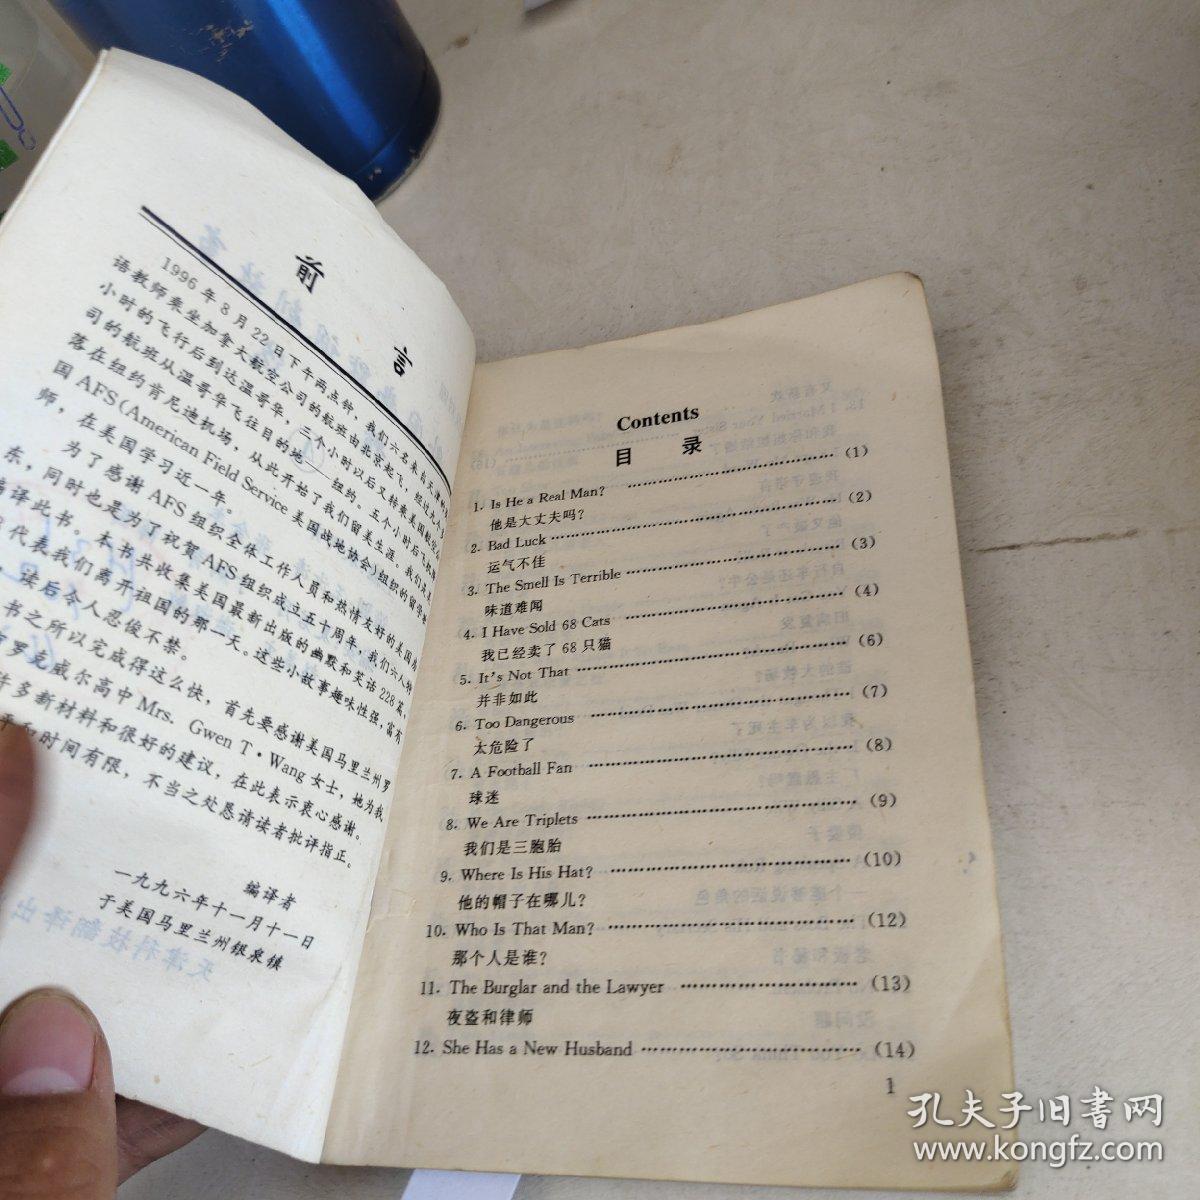 前言
1996年8月22日下午两点钟，我们六名来自天津的
语教师乘坐加拿大航空公司的航班由北京起飞，经过九个多
小时的飞行后到达温哥华，三个小时以后又转乘美国航空公
司的航班从温哥华飞往目的地——纽约。五个小时后飞机
落在纽约肯尼迪机场，从此开始了我们留美生涯。我们是美
国AFS(American Field Service美国战地协会)组织的留学
师，在美国学习近一年。
为了感谢AFS组织全体工作人员和热情友好的美国
东，同时也是为了祝贺AFS组织成立五十周年，我们六人特
编译此书。本书共收集美国最新出版的幽默和笑话228篇，
代表我们离开祖国的那一天。这些小故事趣味性强，富有
，读后令人忍俊不禁。
书之所以完成得这么快，首先要感谢美国马里兰州罗
罗克威尔高中Mrs. Gwen T·Wang女士，她为我
许多新材料和很好的建议，在此表示衷心感谢。
平和时间有限，不当之处恳请读者批评指正。
编译者
一九九六年十一月十一日
于美国马里兰州银泉镇
Contents
目 录
1. Is He a Real Man? …………………………… (1)
他是大丈夫吗？
2. Bad Luck …………………………………… (2)
运气不佳
3. The Smell Is Terrible ………………………… (3)
味道难闻
4. I Have Sold 68 Cats ………………………… (4)
我已经卖了68只猫
5. It's Not That ………………………………… (6)
并非如此
6. Too Dangerous ……………………………… (7)
太危险了
7. A Football Fan ……………………………… (8)
球迷
8. We Are Triplets ……………………………… (9)
我们是三胞胎
9. Where Is His Hat? …………………………… (10)
他的帽子在哪儿？
10. Who Is That Man? ………………………… (12)
那个人是谁？
11. The Burglar and the Lawyer ……………… (13)
夜盗和律师
12. She Has a New Husband ………………… (14)
1
孔夫子旧书网
www.kongfz.com